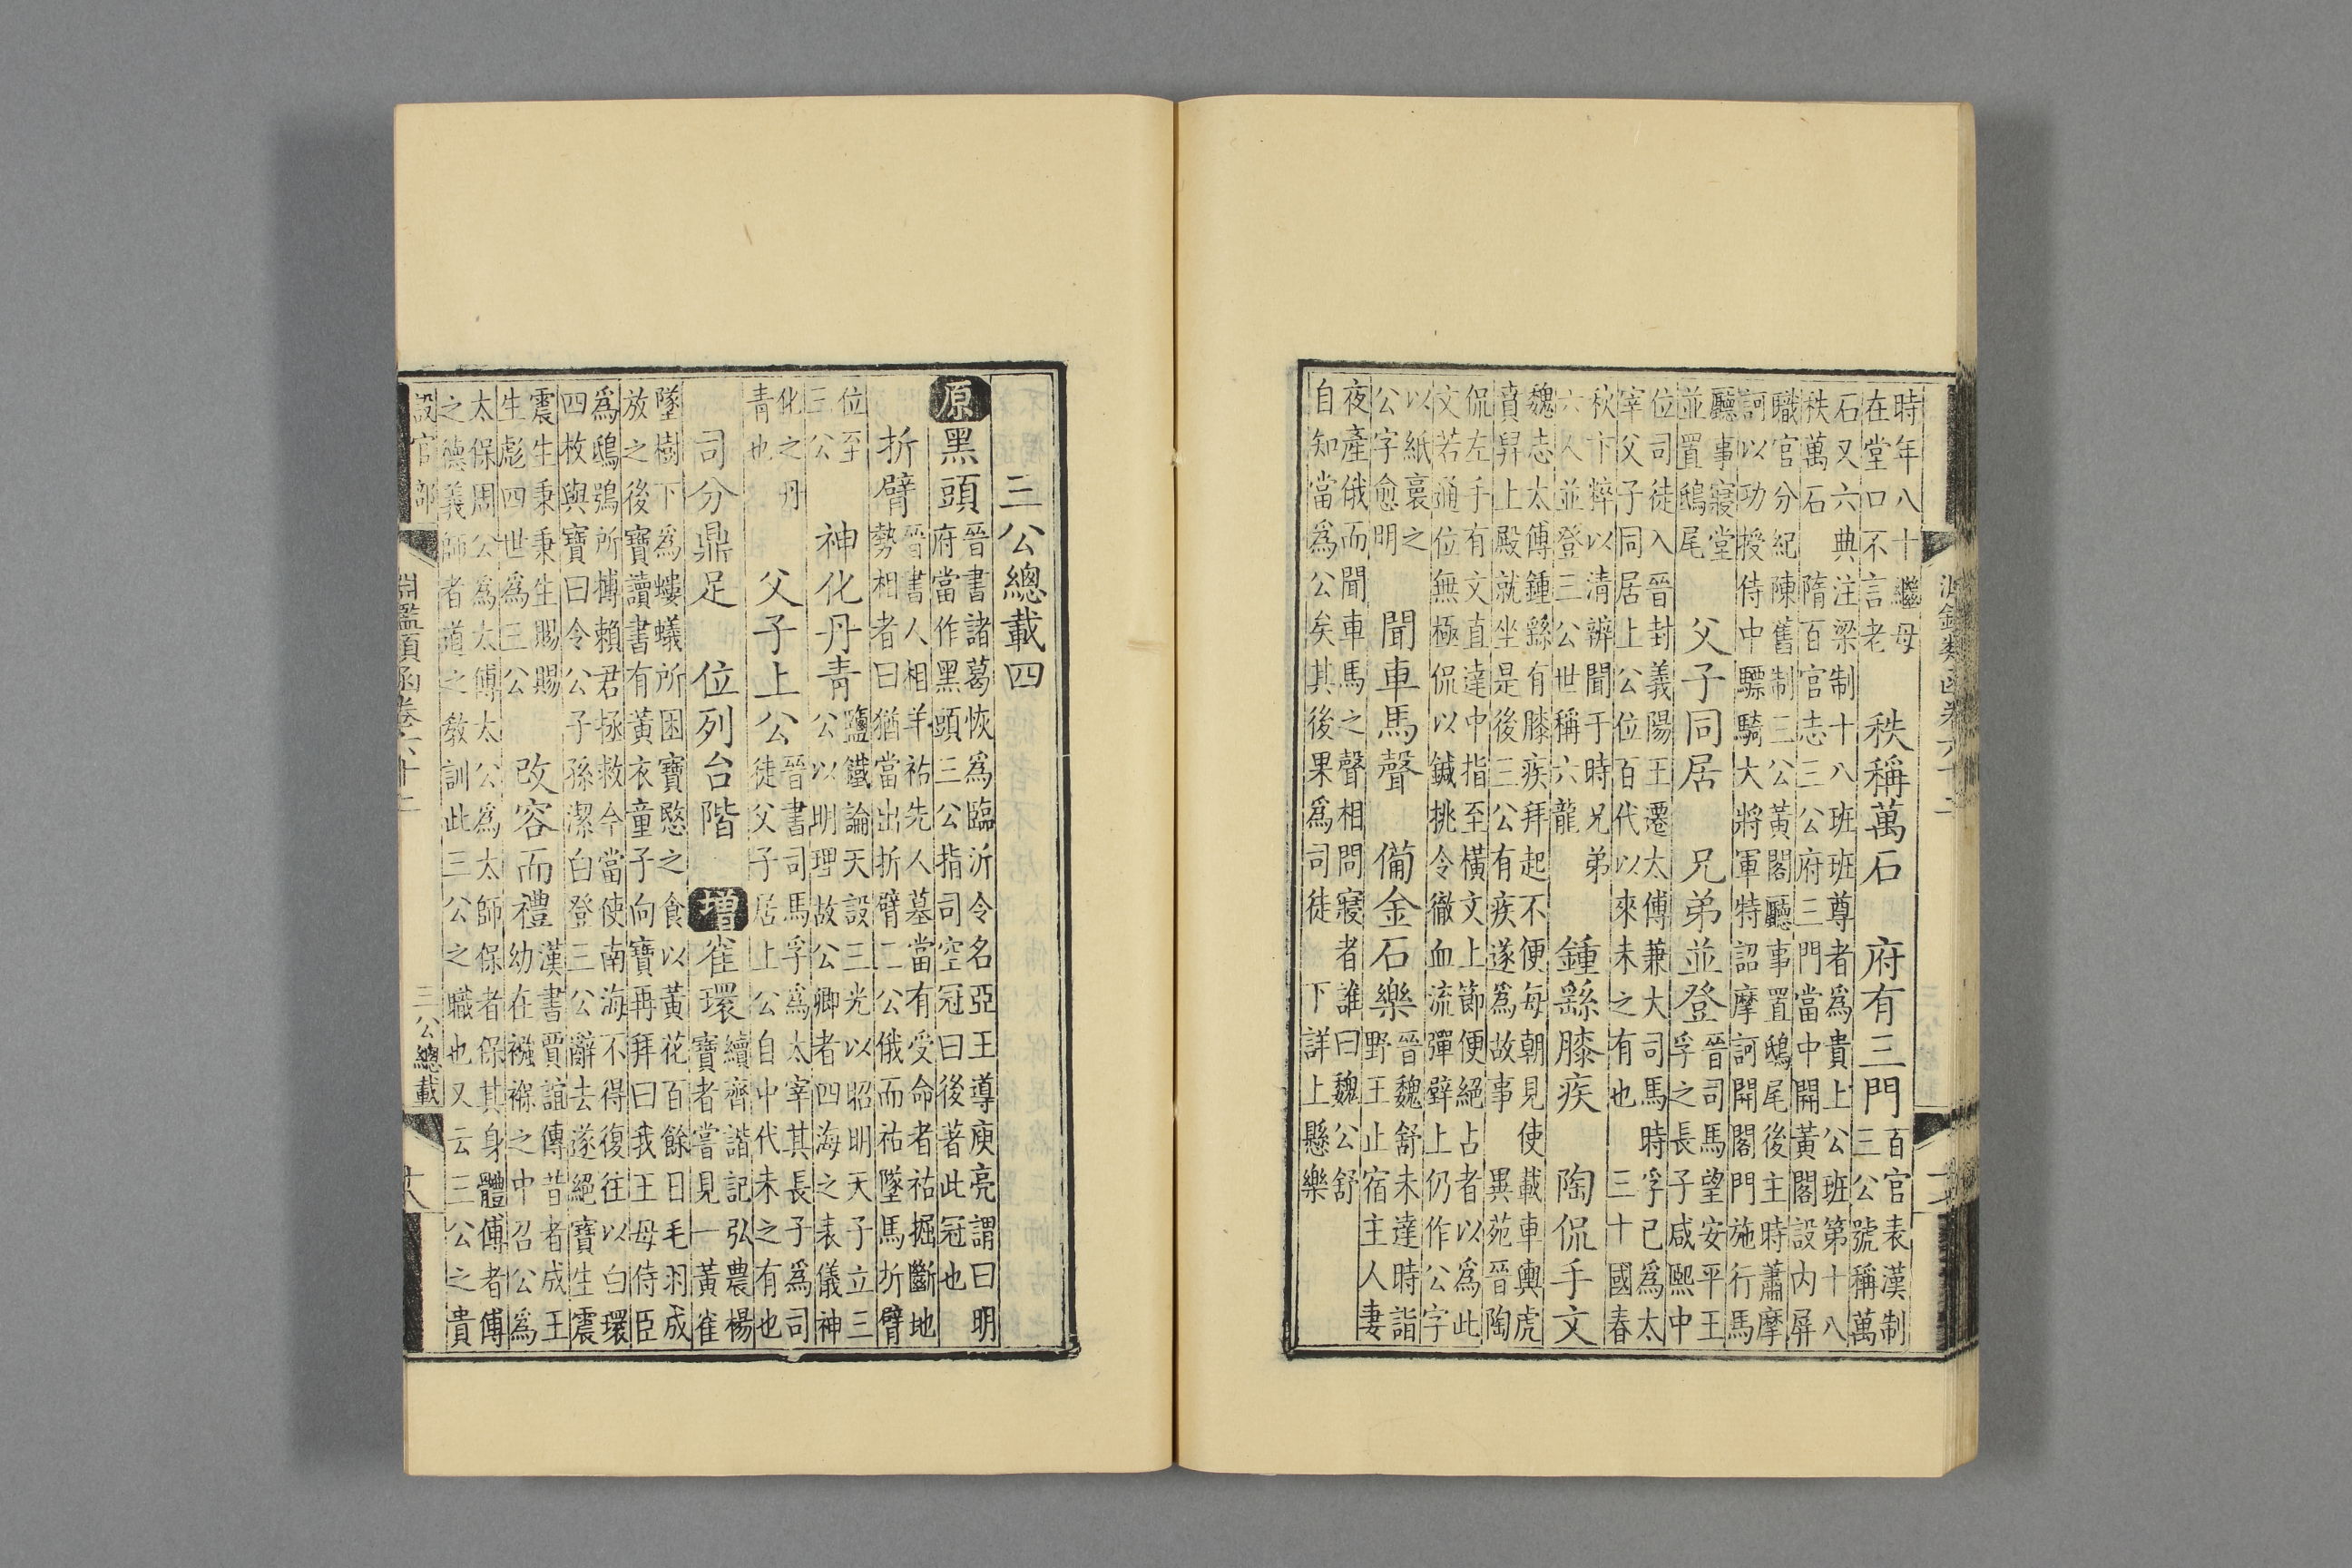 時年八十繼母
在堂口不言老
秩稱萬石　府有三門
百官表漢制
三公號稱萬
石又六典注梁制十八班班尊者為貴上公班第十八
秩萬石　隋百官志三公府三門當中開黃閣設内屏
職官分紀陳舊制三公黃閣廳事置鴟尾後主時蕭摩
訶以功授侍中驃騎大將軍特詔摩訶開閣門施行馬
廳事寢堂
並置鴟尾
父子同居　兄弟並登
晉司馬望安平王
孚之長子咸熙中
位司徒入晉封義陽王遷太傅兼大司馬時孚已為太
宰父子同居上公位百代以來未之有也　三十國春
秋卞粹以清辨聞于時兄弟
六人並登三公世稱六龍
鍾繇膝疾　陶侃手文
魏志太傅鍾繇有膝疾拜起不便每朝見使載車輿虎
賁舁上殿就坐是後三公有疾遂為故事　異苑晉陶
侃左手有文直達中指至橫文上節便絕占者以為此
文若通位無極侃以鍼挑令徹血流彈壁上仍作公字
以紙裛之
公字愈明
聞車馬聲　備金石樂
晉魏舒未達時詣
野王止宿主人妻
夜產俄而聞車馬之聲相問寢者誰曰魏公舒
自知當為公矣其後果為司徒　下詳上懸樂
三公總載四
原　黑頭
晉書諸葛恢為臨沂令名亞王導庾亮謂曰明
府當作黑頭三公指司空冠曰後著此冠也
折臂
晉書人相羊祜先人墓當有受命者祜掘斷地
勢相者曰猶當出折臂二公俄而祜墜馬折臂
位至
三公
神化丹青
鹽鐵論天設三光以昭明天子立三
公以明理故公卿者四海之表儀神
化之丹
青也
父子上公
晉書司馬孚為太宰其長子為司
徒父子居上公自中代未之有也
司分鼎足　位列台階　增　雀環
續齊諧記弘農楊
寶者嘗見一黃雀
墜樹下為螻蟻所困寶愍之食以黃花百餘日毛羽成
放之後寶讀書有黃衣童子向寶再拜曰我王母侍臣
為鴟鴞所搏賴君拯救今當使南海不得復往以白環
四枚與寶曰令公子孫潔白登三公辭去遂絕寶生震
震生秉秉生賜賜
生彪四世為三公
改容而禮
漢書賈誼傳昔者成王
幼在襁褓之中召公為
太保周公為太傅太公為太師保者保其身體傅者傅
之德義師者道之敎訓此三公之職也又云三公之貴
設官部
淵鑑類函卷六十二
三公總載